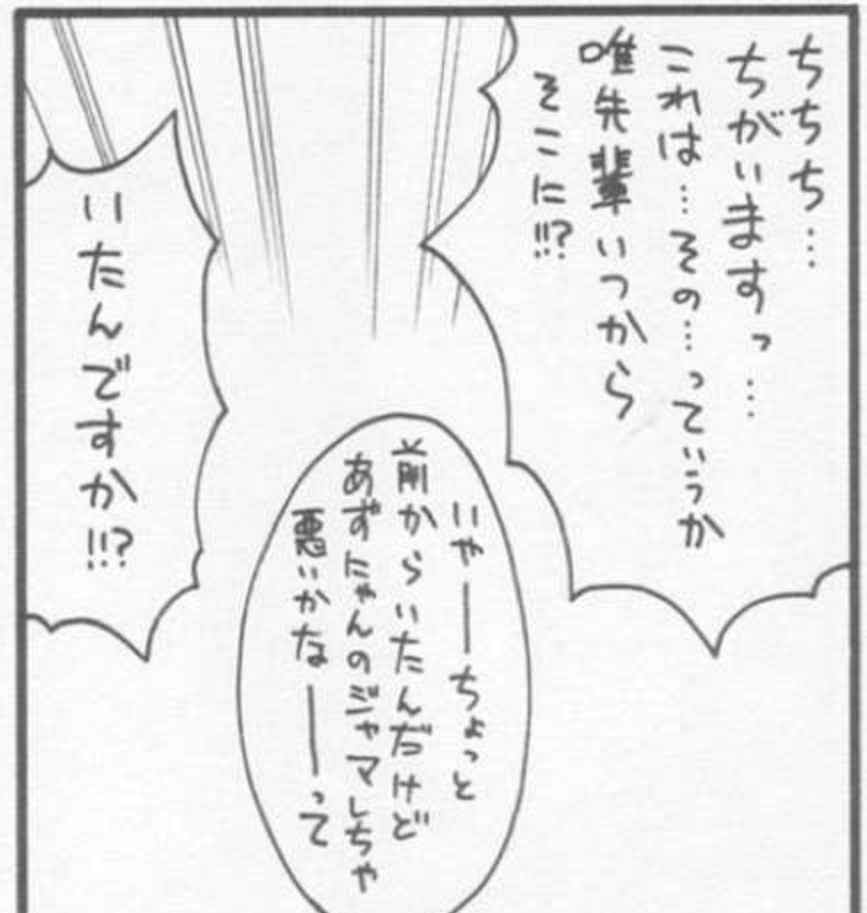 ちちち…
ちがいますっ…
これは…その…っていうか
唯先輩いつから
そこに!!?
いや――ちょっと
前からいたんだけど
あずにゃんのジャマしちゃ
悪いかな――って
いたんですか!!?